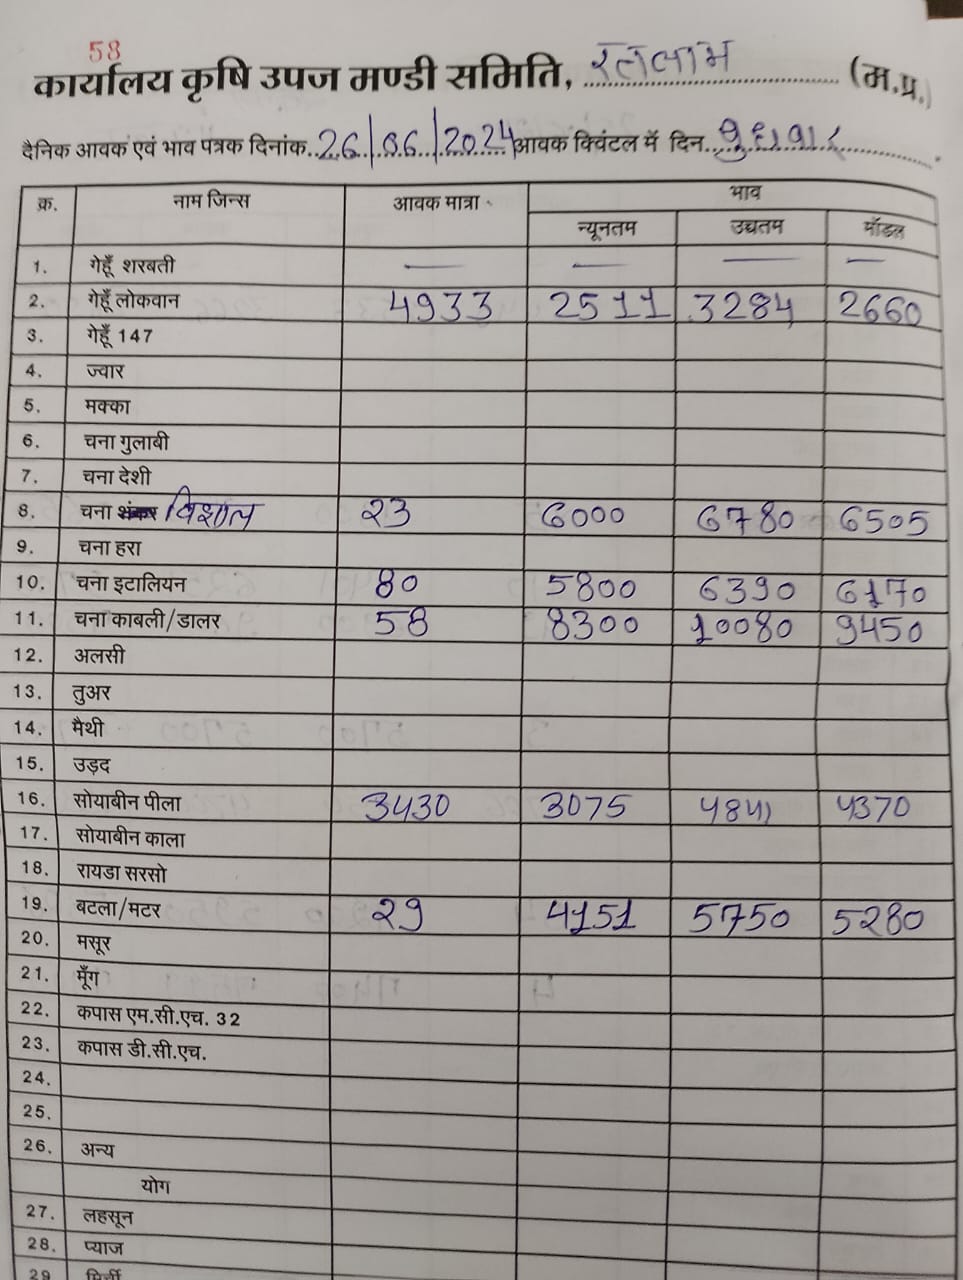 58
कार्यालय कृषि उपज मण्डी समिति, रतलाम (म.प्र.)
दैनिक आवक एवं भाव पत्रक दिनांक 26/06/2024 आवक क्विंटल में दिन बुधवार
क्र. नाम जिन्स आवक मात्रा भाव
न्यूनतम उच्चतम मॉडल
1. गेहूँ शरबती — — — —
2. गेहूँ लोकवान 4933 2511 3284 2660
3. गेहूँ 147
4. ज्वार
5. मक्का
6. चना गुलाबी
7. चना देशी
8. चना विशाल 23 6000 6780 6505
9. चना हरा
10. चना इटालियन 80 5800 6390 6170
11. चना काबली/डालर 58 8300 10080 9450
12. अलसी
13. तुअर
14. मैथी
15. उड़द
16. सोयाबीन पीला 3430 3075 4841 4370
17. सोयाबीन काला
18. रायडा सरसो
19. बटला/मटर 29 4151 5750 5280
20. मसूर
21. मूँग
22. कपास एम.सी.एच. 32
23. कपास डी.सी.एच.
24.
25.
26. अन्य
योग
27. लहसून
28. प्याज
29 मिर्ची